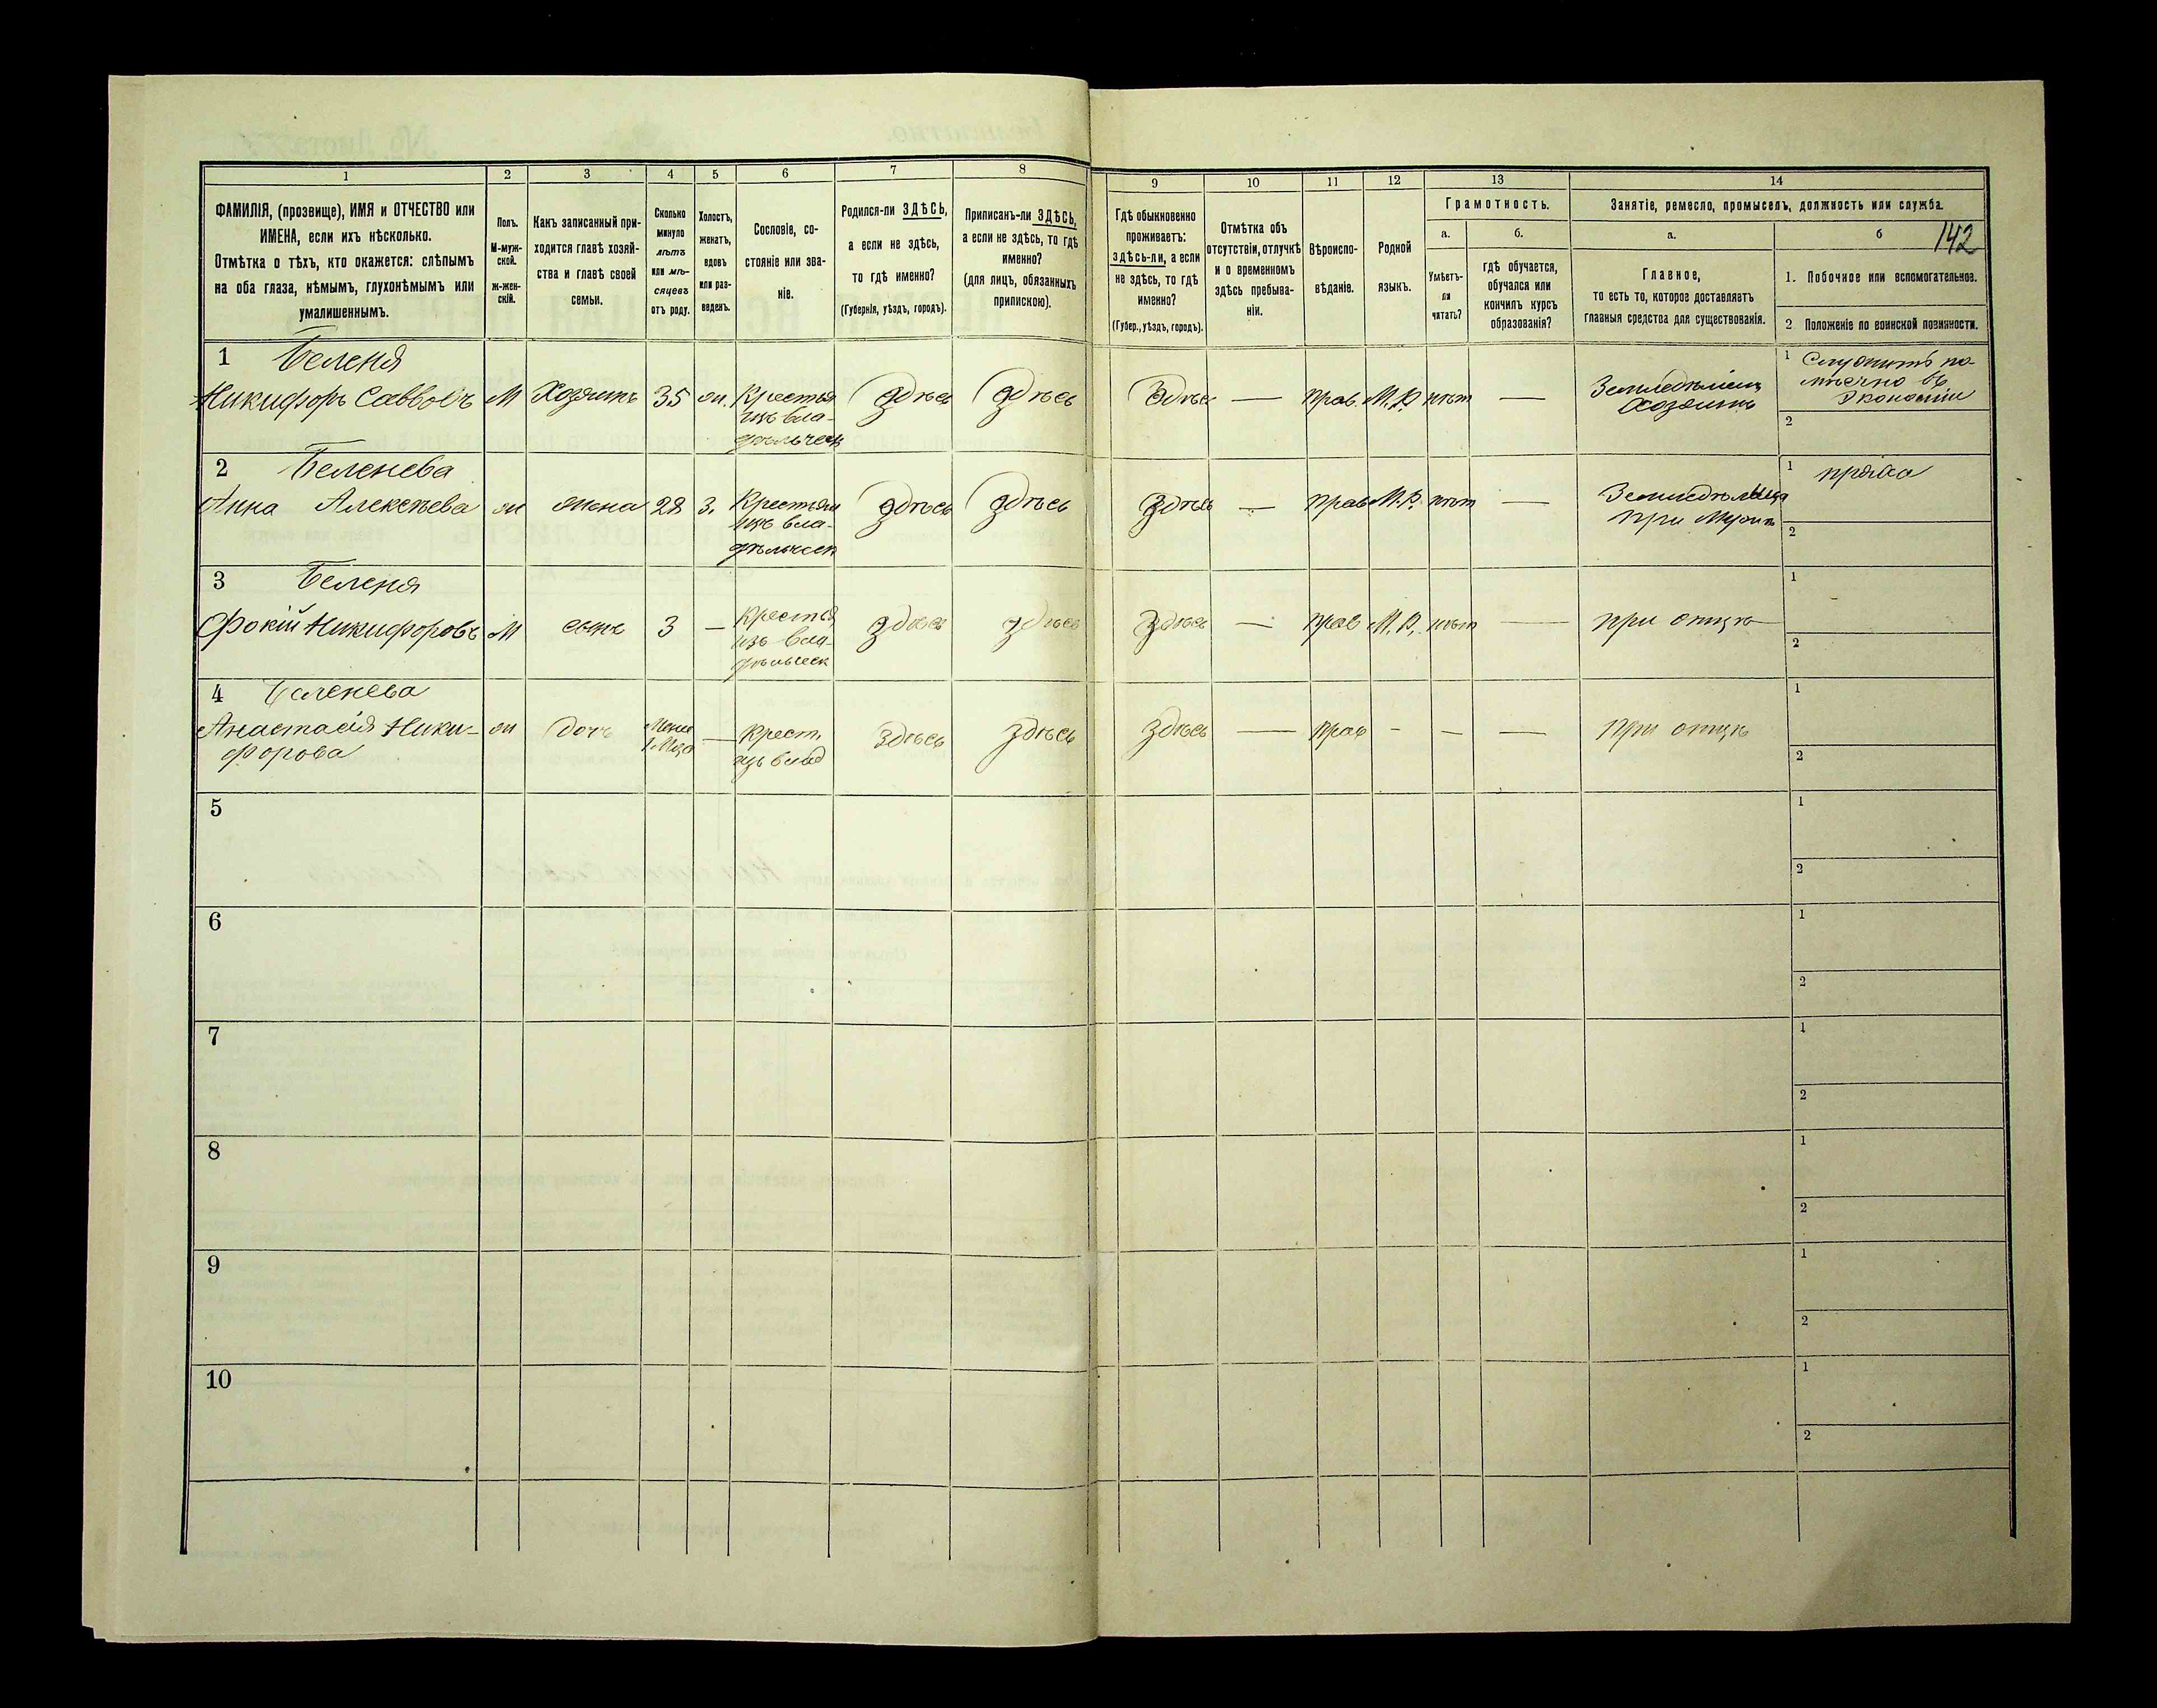 1
2
3
4
5
6
7
8
9
10
11
12
13
14
ФАМИЛІЯ, (прозвище), ИМЯ и ОТЧЕСТВО или
ИМЕНА, если ихъ нѣсколько.
Отмѣтка о тѣхъ, кто окажется: слѣпымъ
на оба глаза, нѣмымъ, глухонѣмымъ или
умалишеннымъ.
Полъ.
М-муж-
ской.
ж-жен-
скій.
Какъ записанный при-
ходится главѣ хозяй-
ства и главѣ своей
семьи.
Сколько
минуло
лѣтъ
или мѣ-
сяцевъ
отъ роду.
Холостъ,
женатъ,
вдовъ
или раз-
веденъ.
Сословіе, со-
стояніе или зва-
ніе.
Родился-ли ЗДѢСЬ,
а если не здѣсь,
то гдѣ именно?
(Губернія, уѣздъ, городъ).
Приписанъ-ли ЗДѢСЬ,
а если не здѣсь, то гдѣ
именно?
(для лицъ, обязанныхъ
припискою).
Гдѣ обыкновенно
проживаетъ:
здѣсь-ли, а если
не здѣсь, то гдѣ
именно?
(Губер., уѣздъ, городъ).
Отмѣтка объ
отсутствіи, отлучкѣ
и о временномъ
здѣсь пребыва-
ніи.
Вѣроиспо-
вѣданіе.
Родной
языкъ.
Грамотность.
а.
Умѣетъ-
ли
читать?
б.
гдѣ обучается,
обучался или
кончилъ курсъ
образованія?
Занятіе, ремесло, промыселъ, должность или служба.
а.
Главное,
то есть то, которое доставляетъ
главныя средства для существованія.
б
142
1. Побочное или вспомогательное.
2 Положеніе по воинской повинности.
1 Беленя
Никифоръ Саввовъ М Хозяинъ 35 ж. Крестья
изъ вла-
дѣльческ
Здѣсь Здѣсь Здѣсь — прав. М.Р. нѣтъ —
Земледѣлецъ
Хозяинъ
1 Служитъ по-
мѣсячно въ
Экономіи
2
2 Беленева
Анна Алексѣева ж жена 28 з. Крестьян
изъ вла-
дѣльческ
здѣсь здѣсь здѣсь — прав М.Р. нѣт —
Земледѣлица
при Мужѣ
1 пряха
2
3 Беленя
Фокій Никифоровъ М сынъ 3 — Крестья
изъ вла-
дѣльческ
здѣсь здѣсь здѣсь — прав М.Р. нѣт — при отцѣ
1
2
4 Беленева
Анастасія Ники-
форова
ж дочь Менѣе
1 Мѣс
— Крест.
изъ влад
здѣсь здѣсь здѣсь — прав - - — при отцѣ
1
2
5
1
2
6
1
2
7
1
2
8
1
2
9
1
2
10
1
2